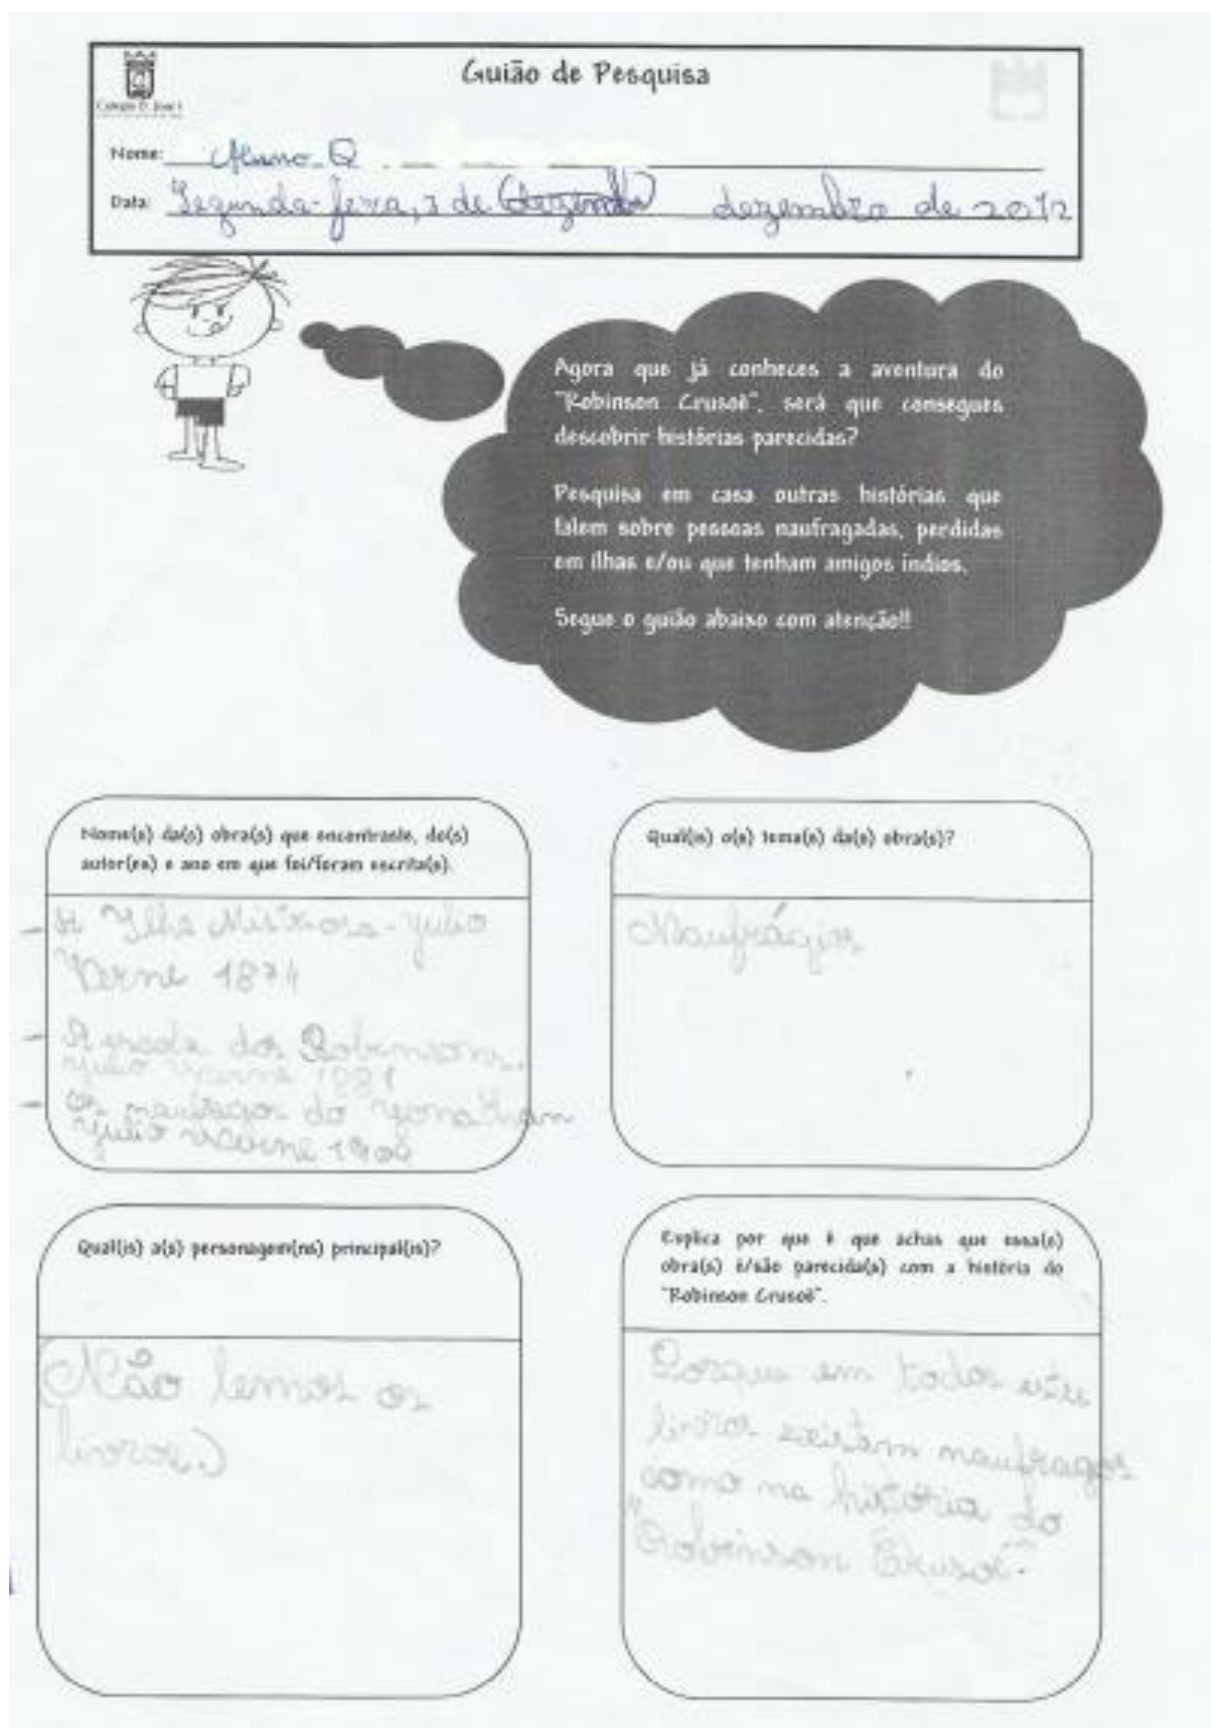 Guião de Pesquisa
Colégio D. José I
Nome: Aluno Q
Data: Segunda-feira, 3 de (dezembro) dezembro de 2012
Agora que já conheces a aventura do
"Robinson Crusoé", será que consegues
descobrir histórias parecidas?
Pesquisa em casa outras histórias que
falem sobre pessoas naufragadas, perdidas
em ilhas e/ou que tenham amigos índios.
Segue o guião abaixo com atenção!!
Nome(s) da(s) obra(s) que encontraste, do(s)
autor(es) e ano em que foi/foram escrita(s).
- A Ilha Misteriosa - Julio
Verne 1874
- A escola dos Robinsons,
Julio Verne 1881
- Os naufragos do Jonathan
Julio Verne
Qual(is) o(s) tema(s) da(s) obra(s)?
Naufrágios
Qual(is) a(s) personagem(ns) principal(is)?
(Não lemos os
livros.)
Explica por que é que achas que essa(s)
obra(s) é/são parecida(s) com a história do
"Robinson Crusoé".
Porque em todos
livros existem naufragos
como na história do
"Robinson Crusoé".